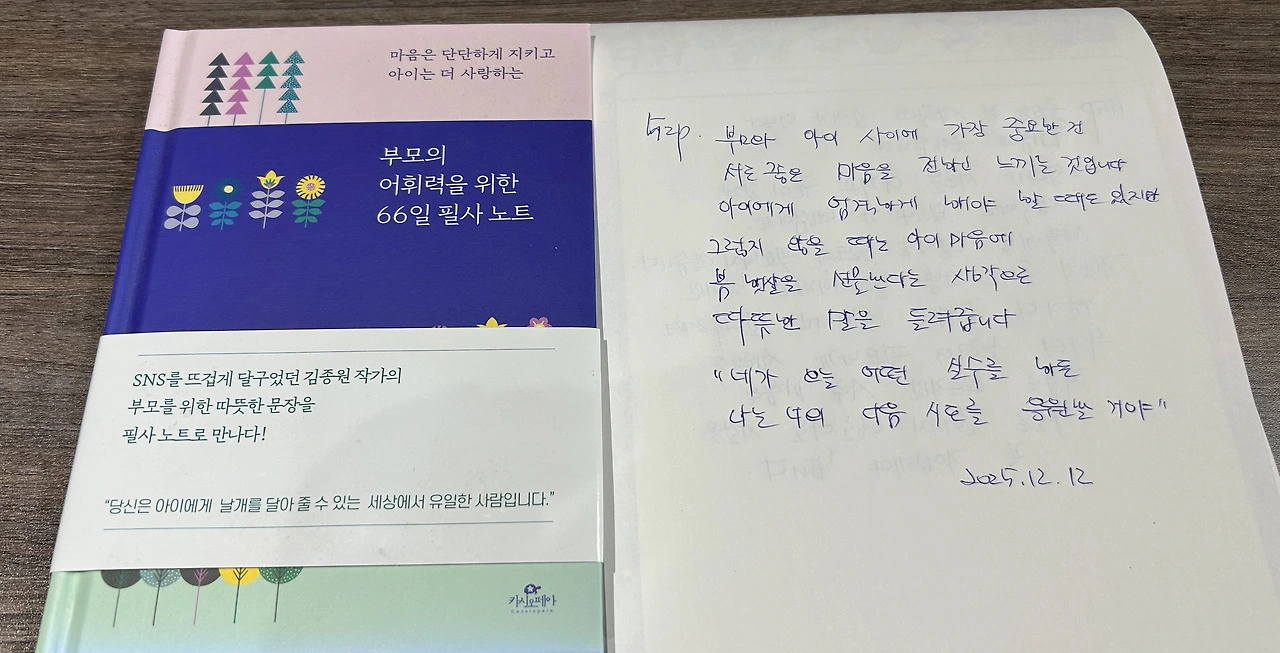 마음은 단단하게 지키고
아이는 더 사랑하는
부모의
어휘력을 위한
66일 필사 노트
SNS를 뜨겁게 달구었던 김종원 작가의
부모를 위한 따뜻한 문장을
필사 노트로 만나다!
“당신은 아이에게 날개를 달아 줄 수 있는 세상에서 유일한 사람입니다.”
카시오페아
Cassiopeia
부모와 아이 사이에 가장 중요한 건
서로 좋은 마음을 전하고 느끼는 것입니다
아이에게 엄격하게 해야 할 때도 있지만
그렇지 않을 때는 아이 마음에
봄 햇살을 선물한다는 생각으로
따뜻한 말을 들려줍니다
"네가 오늘 어떤 실수를 하든
나는 너의 다음 시도를 응원할 거야"
2025.12.12